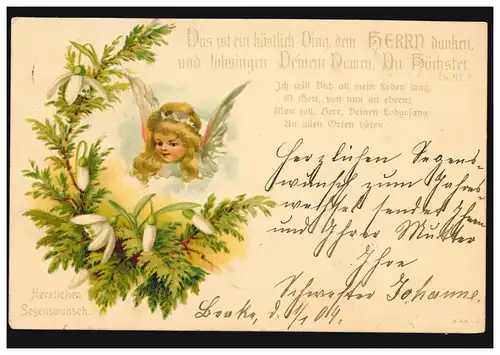 Das ist ein köstlich Ding, dem HERRN danken,
und lobsingen Deinem Namen, Du Höchster.
Ps. 92, 2.
Ich will Dich all mein Leben lang,
O Gott, von nun an ehren;
Man soll, Herr, Deinen Lobgesang
An allen Orten hören.
Herzlichen Segens-
wunsch zum Jahres
wechsel sendet Ihnen
und Ihrer Mutter
Ihre
Schwester Johanne.
Brake, d. 1/1 04.
Herzlichen
Segenswunsch.